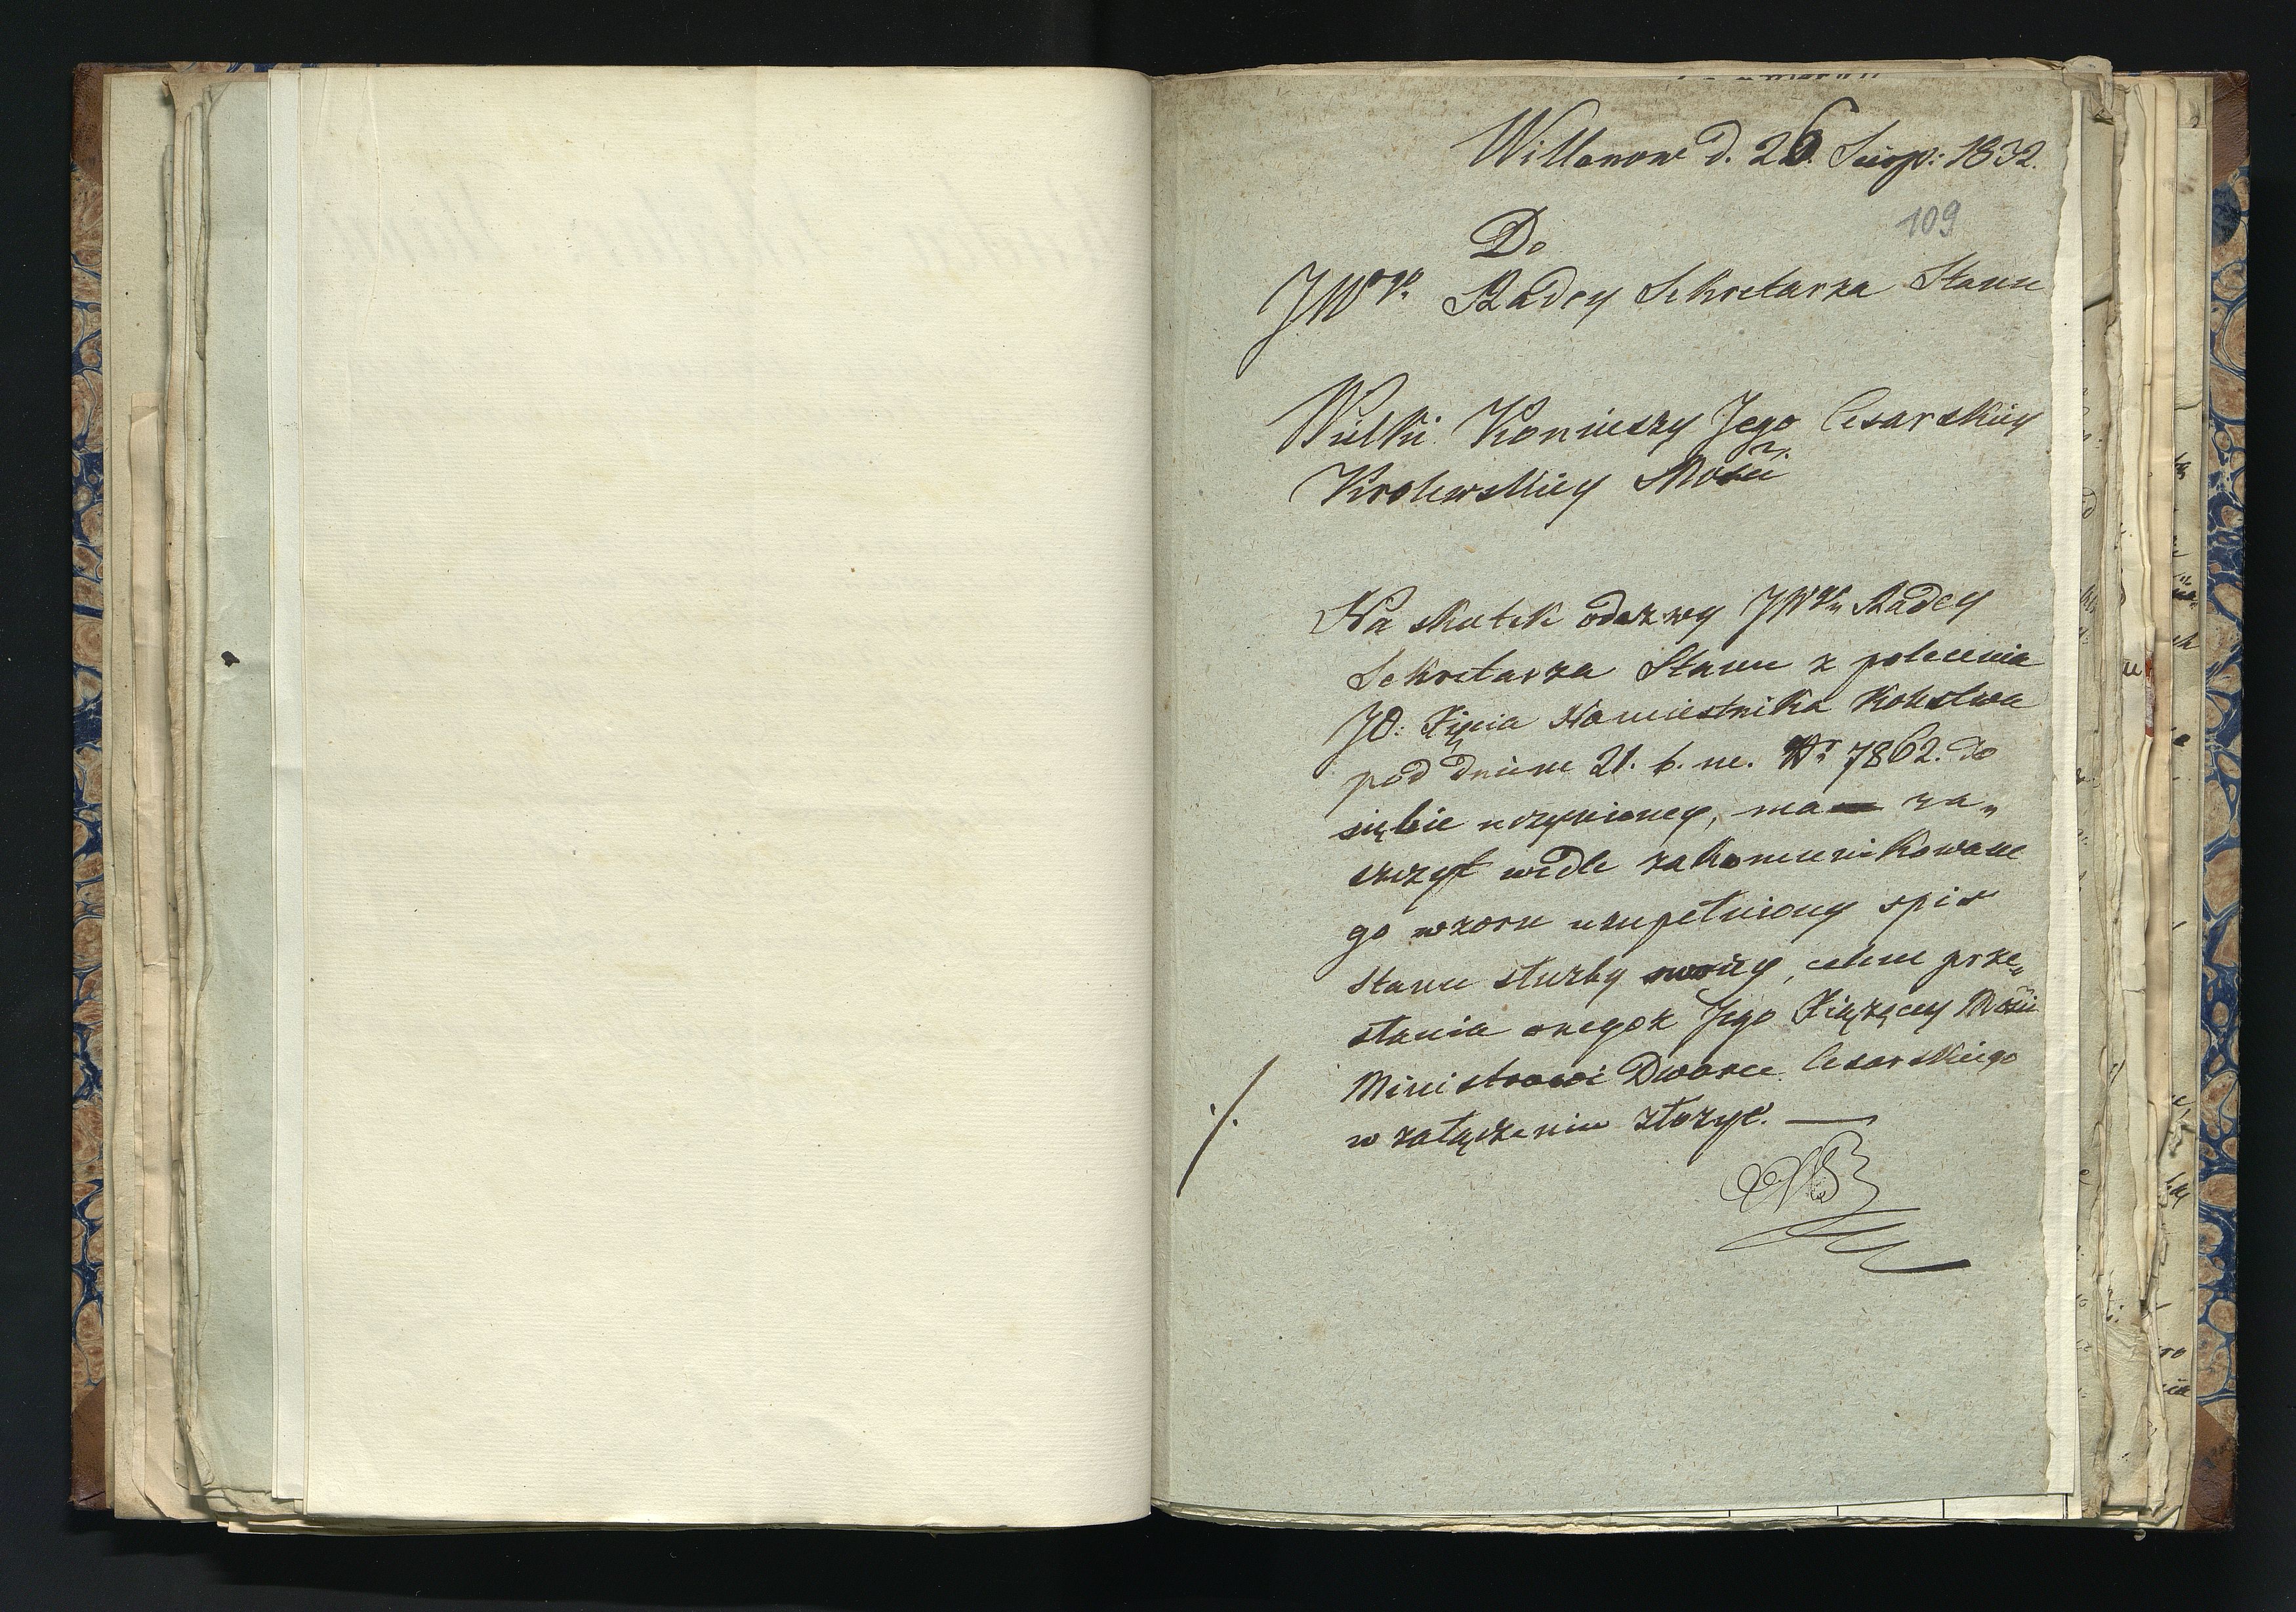 Willanow d. 26. Sierp: 1832.
109
Do
JWgo Radcy Sekretarza Stanu
Wielki Koniuszy Jego Cesarskiey
Krolewskiey Mości
Na skutek odezwy JWgo Radcy
Sekretarza Stanu z polecenia
JO: Xięcia Namiestnika Kolestwa
pod dniem 21. b. m. Nr 7862. do
siębie uczynioney, ma za„
szczyt wedle zakomunikowane
go wzoru uzupełniony spis
stanu służby swoiey, celem prze„
słania onegoż Jego Xiążęcey Mości
Ministrowi Dworu Cesarskiego
w załączeniu złożyć. —
./.